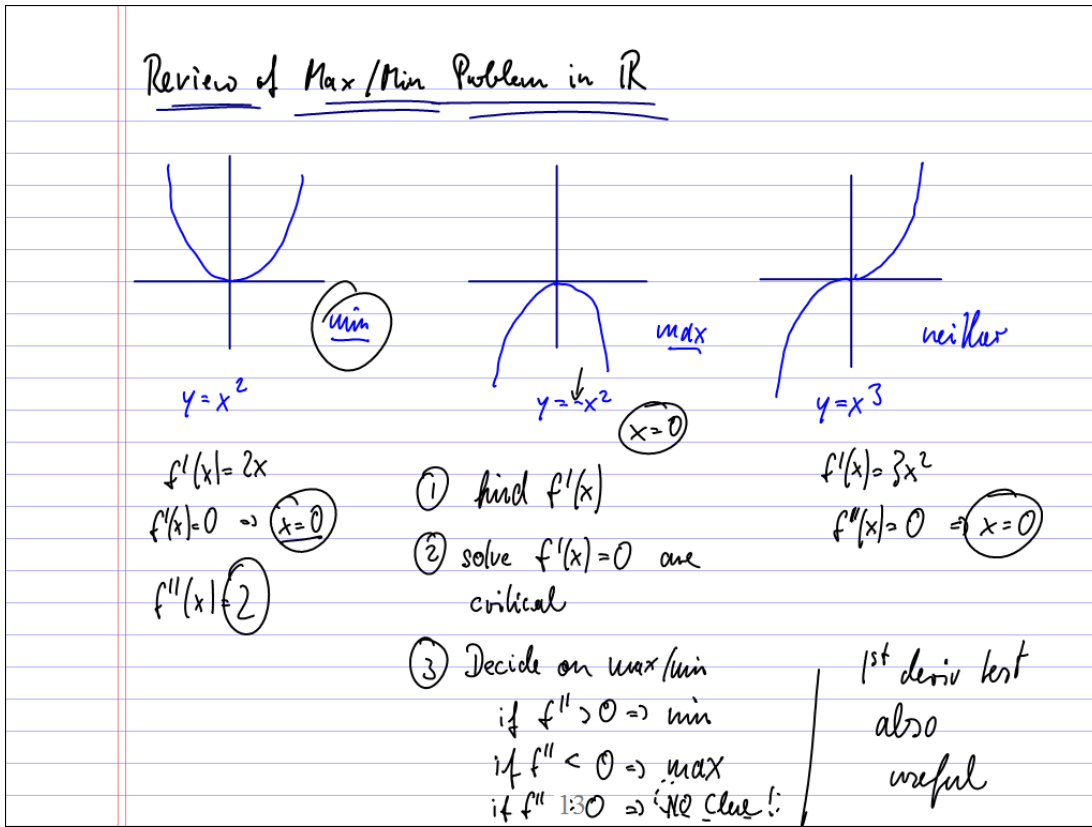 Review of Max/Min Problem in IR
min
max
neither
y = x²
y = -x²
y = x³
x=0
f'(x) = 2x
f'(x)=0 => x=0
f''(x) = 2
① find f'(x)
② solve f'(x)=0 are
critical
③ Decide on max/min
if f'' > 0 => min
if f'' < 0 => max
if f'' = 0 => "No Clue!"
13
f'(x) = 3x²
f''(x) = 0 => x=0
1st deriv test
also
useful